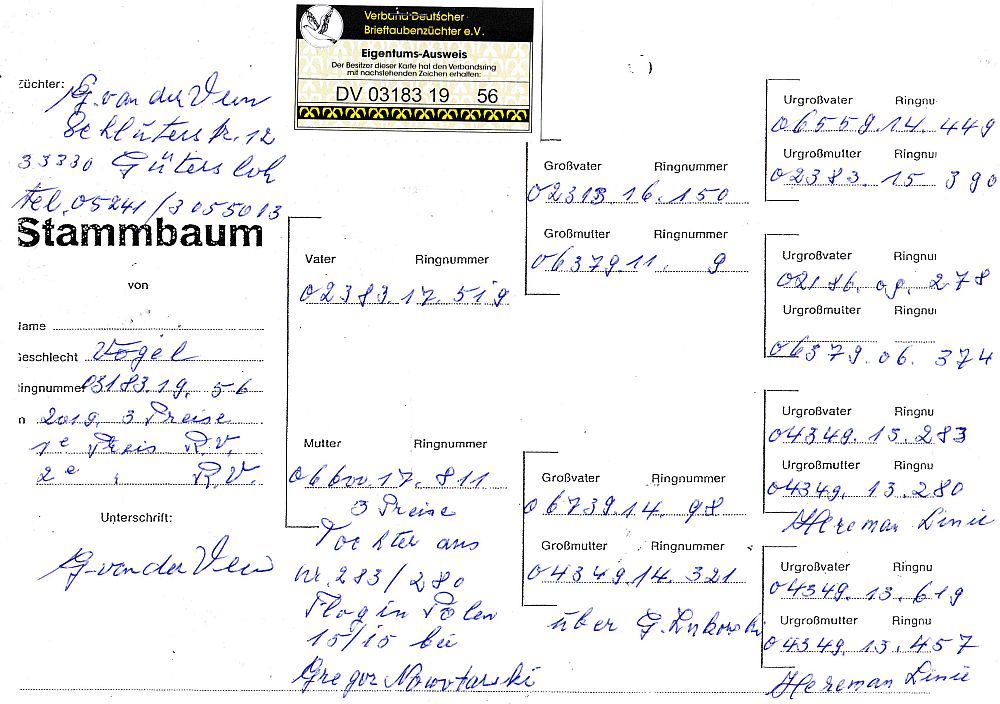 Verband Deutscher
Brieftaubenzüchter e.V.
Eigentums-Ausweis
Der Besitzer dieser Karte hat den Verbandsring
mit nachstehenden Zeichen erhalten:
DV 03183 19 56
züchter: G. van der Veen
Schlüterstr. 12
33330 Gütersloh
Tel. 05241/3055013
Stammbaum
von
Name
Geschlecht Vogel
Ringnummer 03183.19. 56
n 2019. 3 Preise
1e Preis R.V.
2e " R.V.
Unterschrift:
G. van der Veen
Vater Ringnummer
02383.17.519
Mutter Ringnummer
06600.17.811
3 Preise
Tochter aus
nr. 283/280
Flog in Polen
15/15 bei
Gregor Nowotarski
Großvater Ringnummer
02313.16.150
Großmutter Ringnummer
06379.11. 9
Großvater Ringnummer
06739.14. 98
Großmutter Ringnummer
04349.14. 321
über G.
Urgroßvater Ringnu
06559.14.449
Urgroßmutter Ringnu
02383. 15 390
Urgroßvater Ringnu
02186.09.278
Urgroßmutter Ringnu
06379.06. 374
Urgroßvater Ringnu
04349.13.283
Urgroßmutter Ringnu
04349.13.280
Hereman Linie
Urgroßvater Ringnu
04349.13.619
Urgroßmutter Ringnu
04349.13.457
Hereman Linie